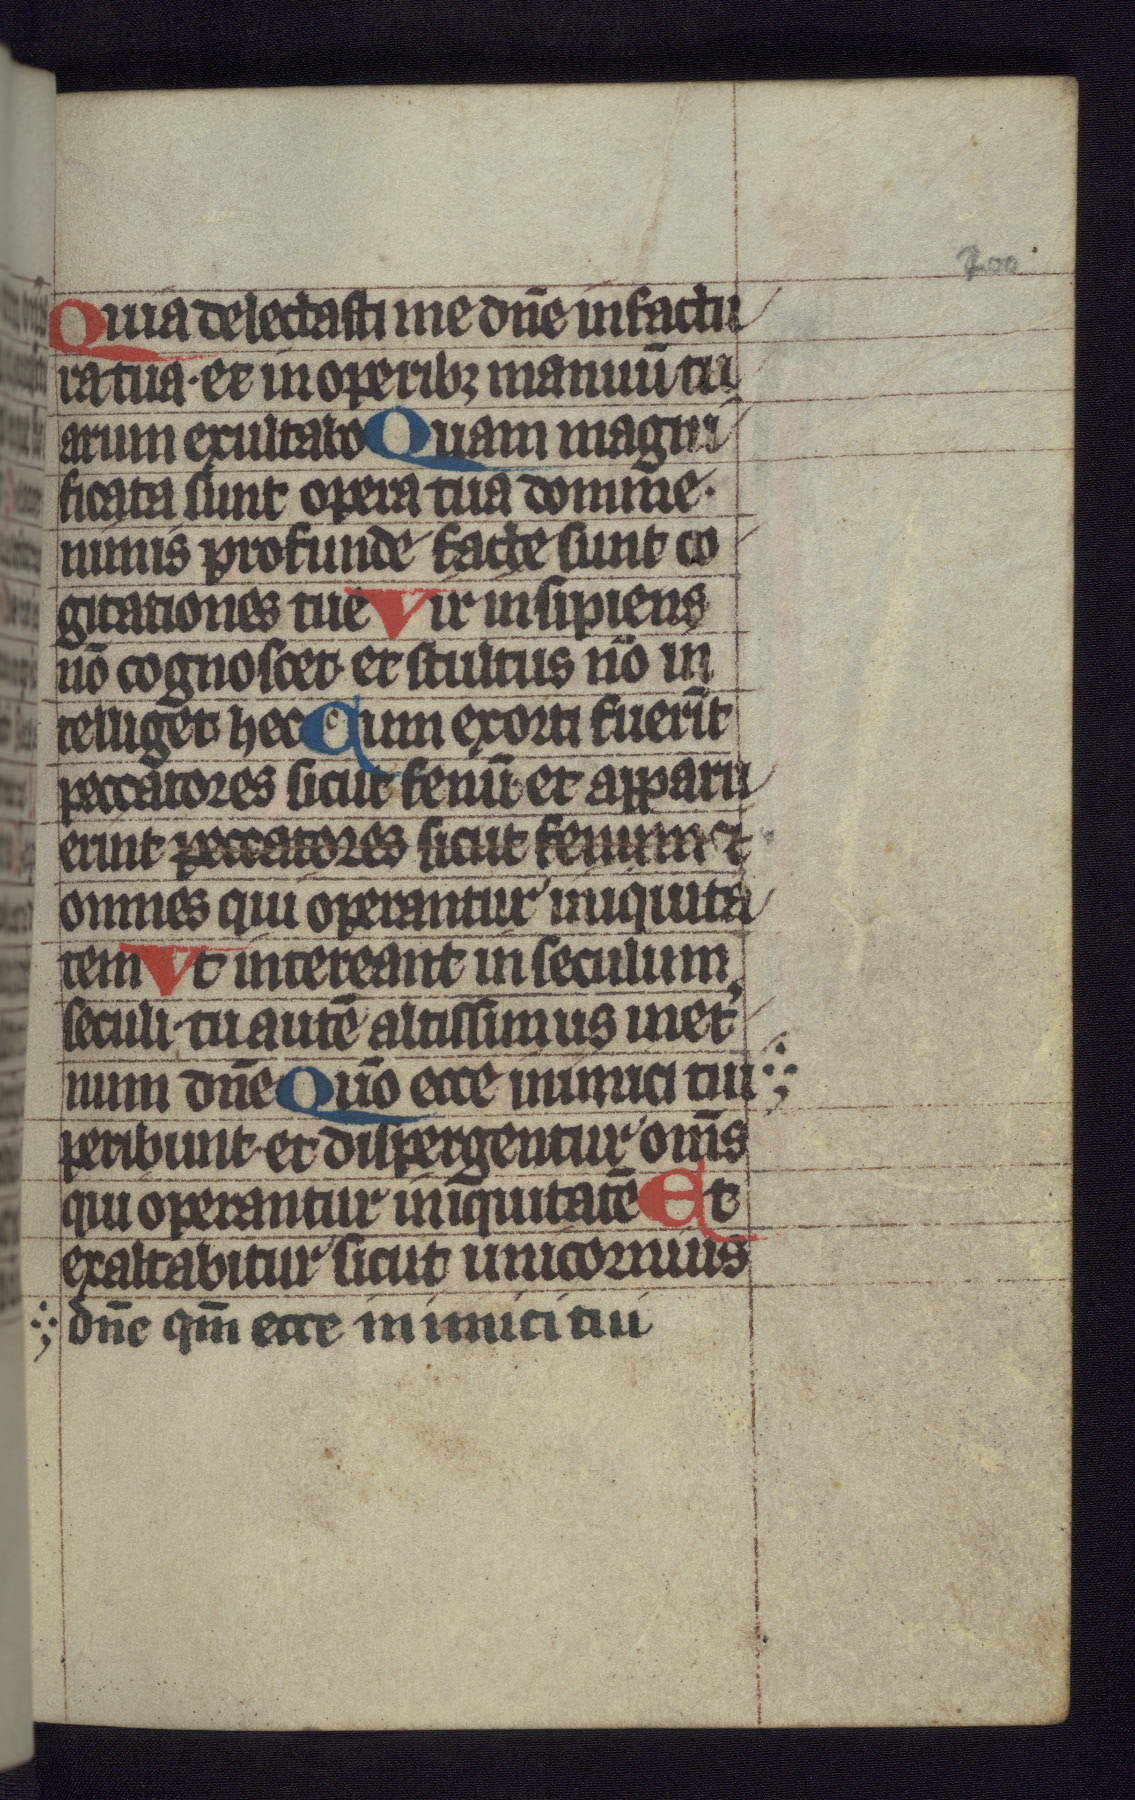 200
Quia delectasti me dñe in factu
ra tua · et in operibꝫ manuū tu
arum exultabo Quam magni
ficata sunt opera tua domine ·
nimis profunde facte sunt co
gitationes tue Vir insipiens
nō cognoscet · et stultus nō in
telliget hec Cum exorti fuerīt
peccatores sicut fenū · et apparu
erint peccatores sicut fenum et
omnes qui operantur iniquita
tem Vt intereant in seculum
seculi · tu autē altissimus in et̾
num dñe Quō ecce inimici tui
peribunt · et dispergentur om̄s
qui operantur iniquitatē Et
exaltabitur sicut unicornuis
dñe qm̄ ecce inimici tui